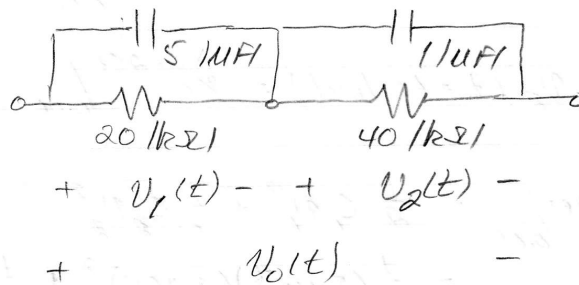 5 /μF/ 1 /μF/
20 /kΩ/ 40 /kΩ/
+ v₁(t) - + v₂(t) -
+ v₀(t) -